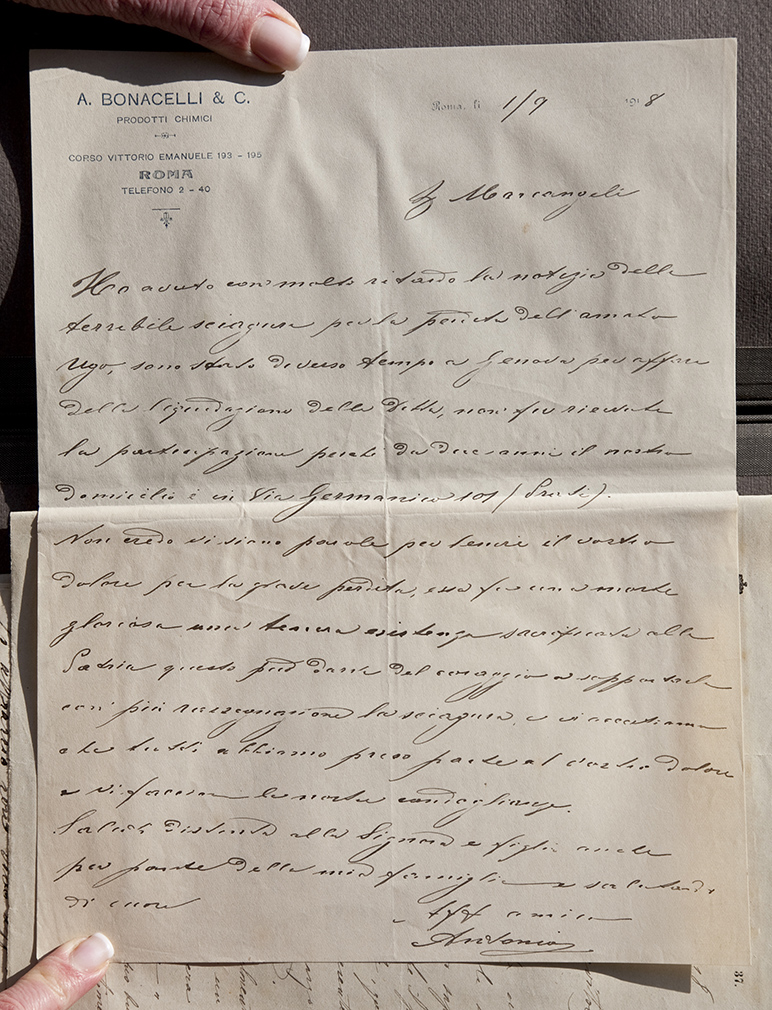 A. BONACELLI & C.
PRODOTTI CHIMICI
CORSO VITTORIO EMANUELE 193 - 195
ROMA
TELEFONO 2 - 40
Roma, li 1/9 1918
Marcangeli
Ho avuto con molto ritardo la notizia della
terribile sciagura per la perdita dell'amato
Ugo, sono stato diverso tempo a Genova per affari
della liquidazione della Ditta, non fu ricevuta
la partecipazione perchè da due anni il nostro
domicilio è in Via Germanico 101 (Prati).
Non credo vi siano parole per lenire il vostro
dolore per la grave perdita, essa fu una morte
gloriosa una tenera esistenza sacrificata alla
Patria questo può darvi del coraggio a sopportare
con più rassegnazione la sciagura, e vi accertiamo
che tutti abbiamo preso parte al vostro dolore
e vi facciamo le nostre condoglianze.
Saluti distinti alla Signora e figlia anche
per parte della mia famiglia e salutandovi
di cuore
aff amico
Antonio
37.